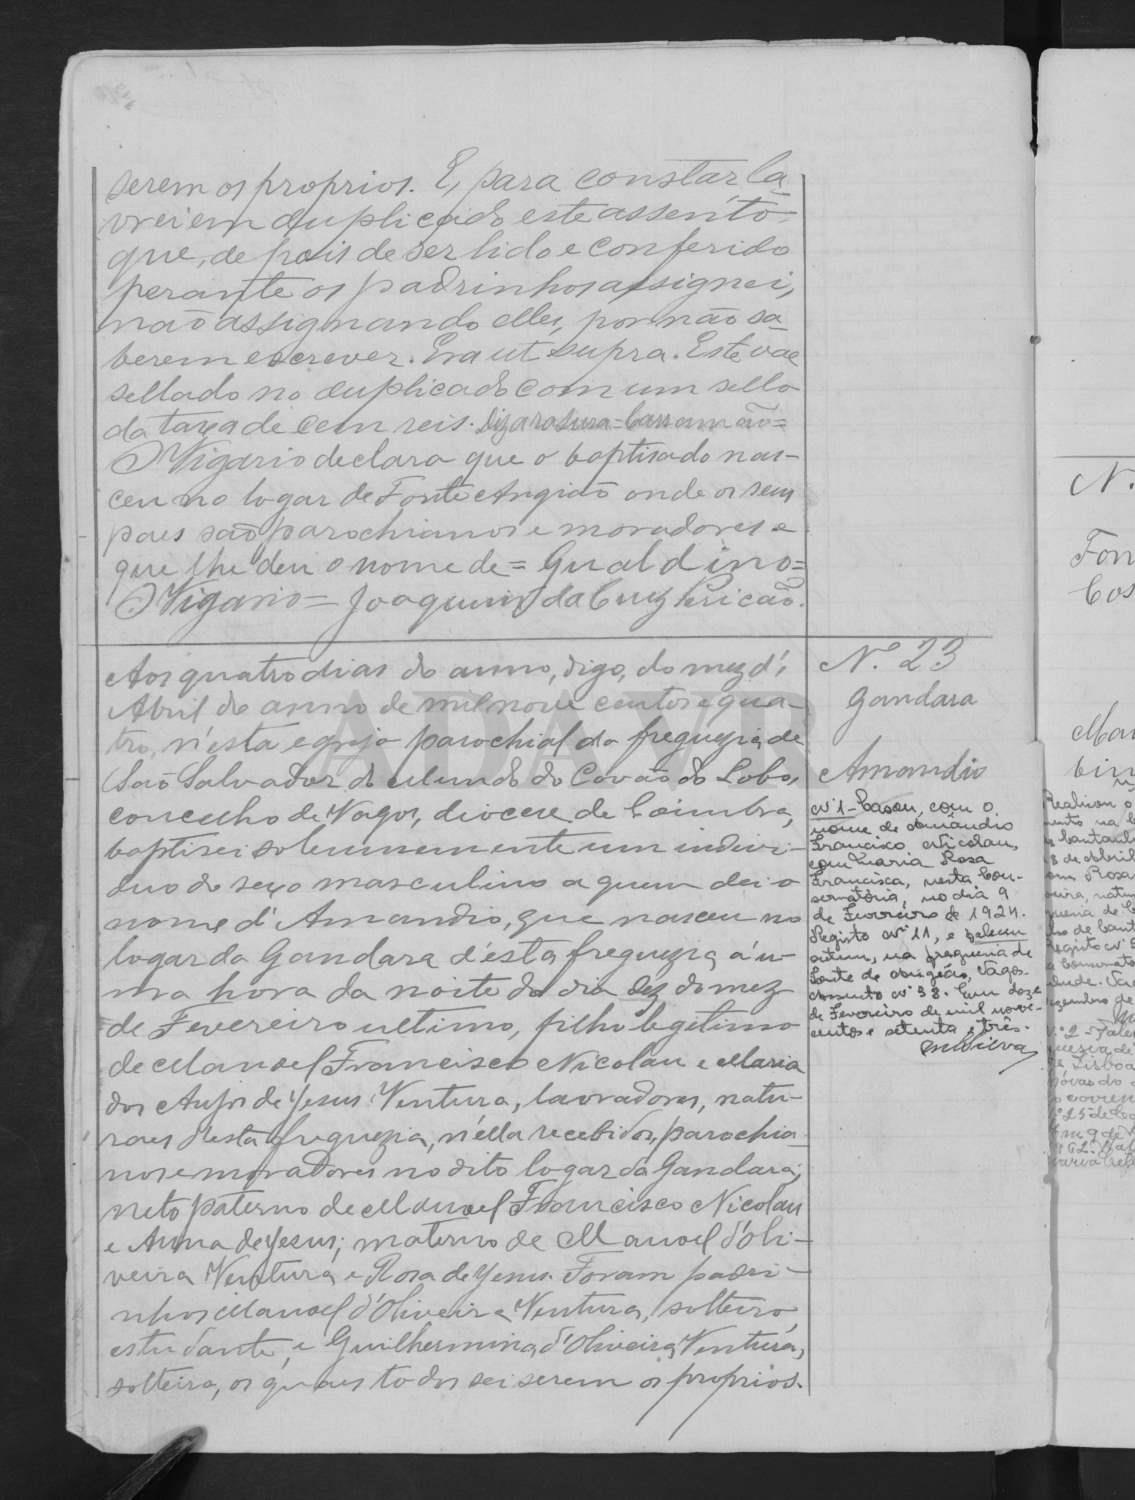 serem os proprios. E, para constar, la-
vrei em duplicado este assento
que, depois de ser lido e conferido
perante os padrinhos assignei,
não assignando elles, por não sa-
berem escrever. Era ut supra. Este vae
sellado no duplicado com um sello
da taxa de cem reis. Diz a rasura =
O Vigario declara que o baptisado nas-
ceu no logar de Fonte Angião onde os seus
paes são parochianos e moradores e
que lhe deu o nome de = Gualdino =
O Vigario = Joaquim da Cruz
Aos quatro dias do anno, digo, do mez d'
Abril do anno de mil nove centos e qua-
tro, n'esta egreja parochial da freguezia de
São Salvador do Mundo do Covão do Lobo,
concelho de Vagos, diocese de Coimbra,
baptisei solemnemente um indivi-
duo do sexo masculino a quem dei o
nome d'Amandio, que nasceu no
logar da Gandara d'esta freguezia á u-
ma hora da noite do dia dez do mez
de Fevereiro ultimo, filho legitimo
de Manoel Francisco Nicolau e Maria
dos Anjos de Jesus Ventura, lavradores, natu-
raes d'esta freguezia, n'ella recebidos, parochia-
nos e moradores no dito logar da Gandara;
neto paterno de Manoel Francisco Nicolau
e Anna de Jesus; materno de Manoel d'Oli-
veira Ventura e Rosa de Jesus. Foram padri-
nhos Manoel d'Oliveira Ventura, solteiro,
estudante, e Guilhermina d'Oliveira Ventura,
solteira, os quaes todos sei serem os proprios.
Nº 23
Gandara
Amandio
Nº 1 - Casou, com o
nome de Amândio
Francisco Nicolau,
com Maria Rosa
Francisca, nesta Con-
servatória, no dia 9
de Fevereiro de 1924.
Registo Nº 11, e faleceu
ontem, na freguesia de
Fonte de Angião, Vagos.
Assento nº 38. Em doze
de Fevereiro de mil nove-
centos e setenta e três.
MSilva
N.
Fon
Cos
ADAVR